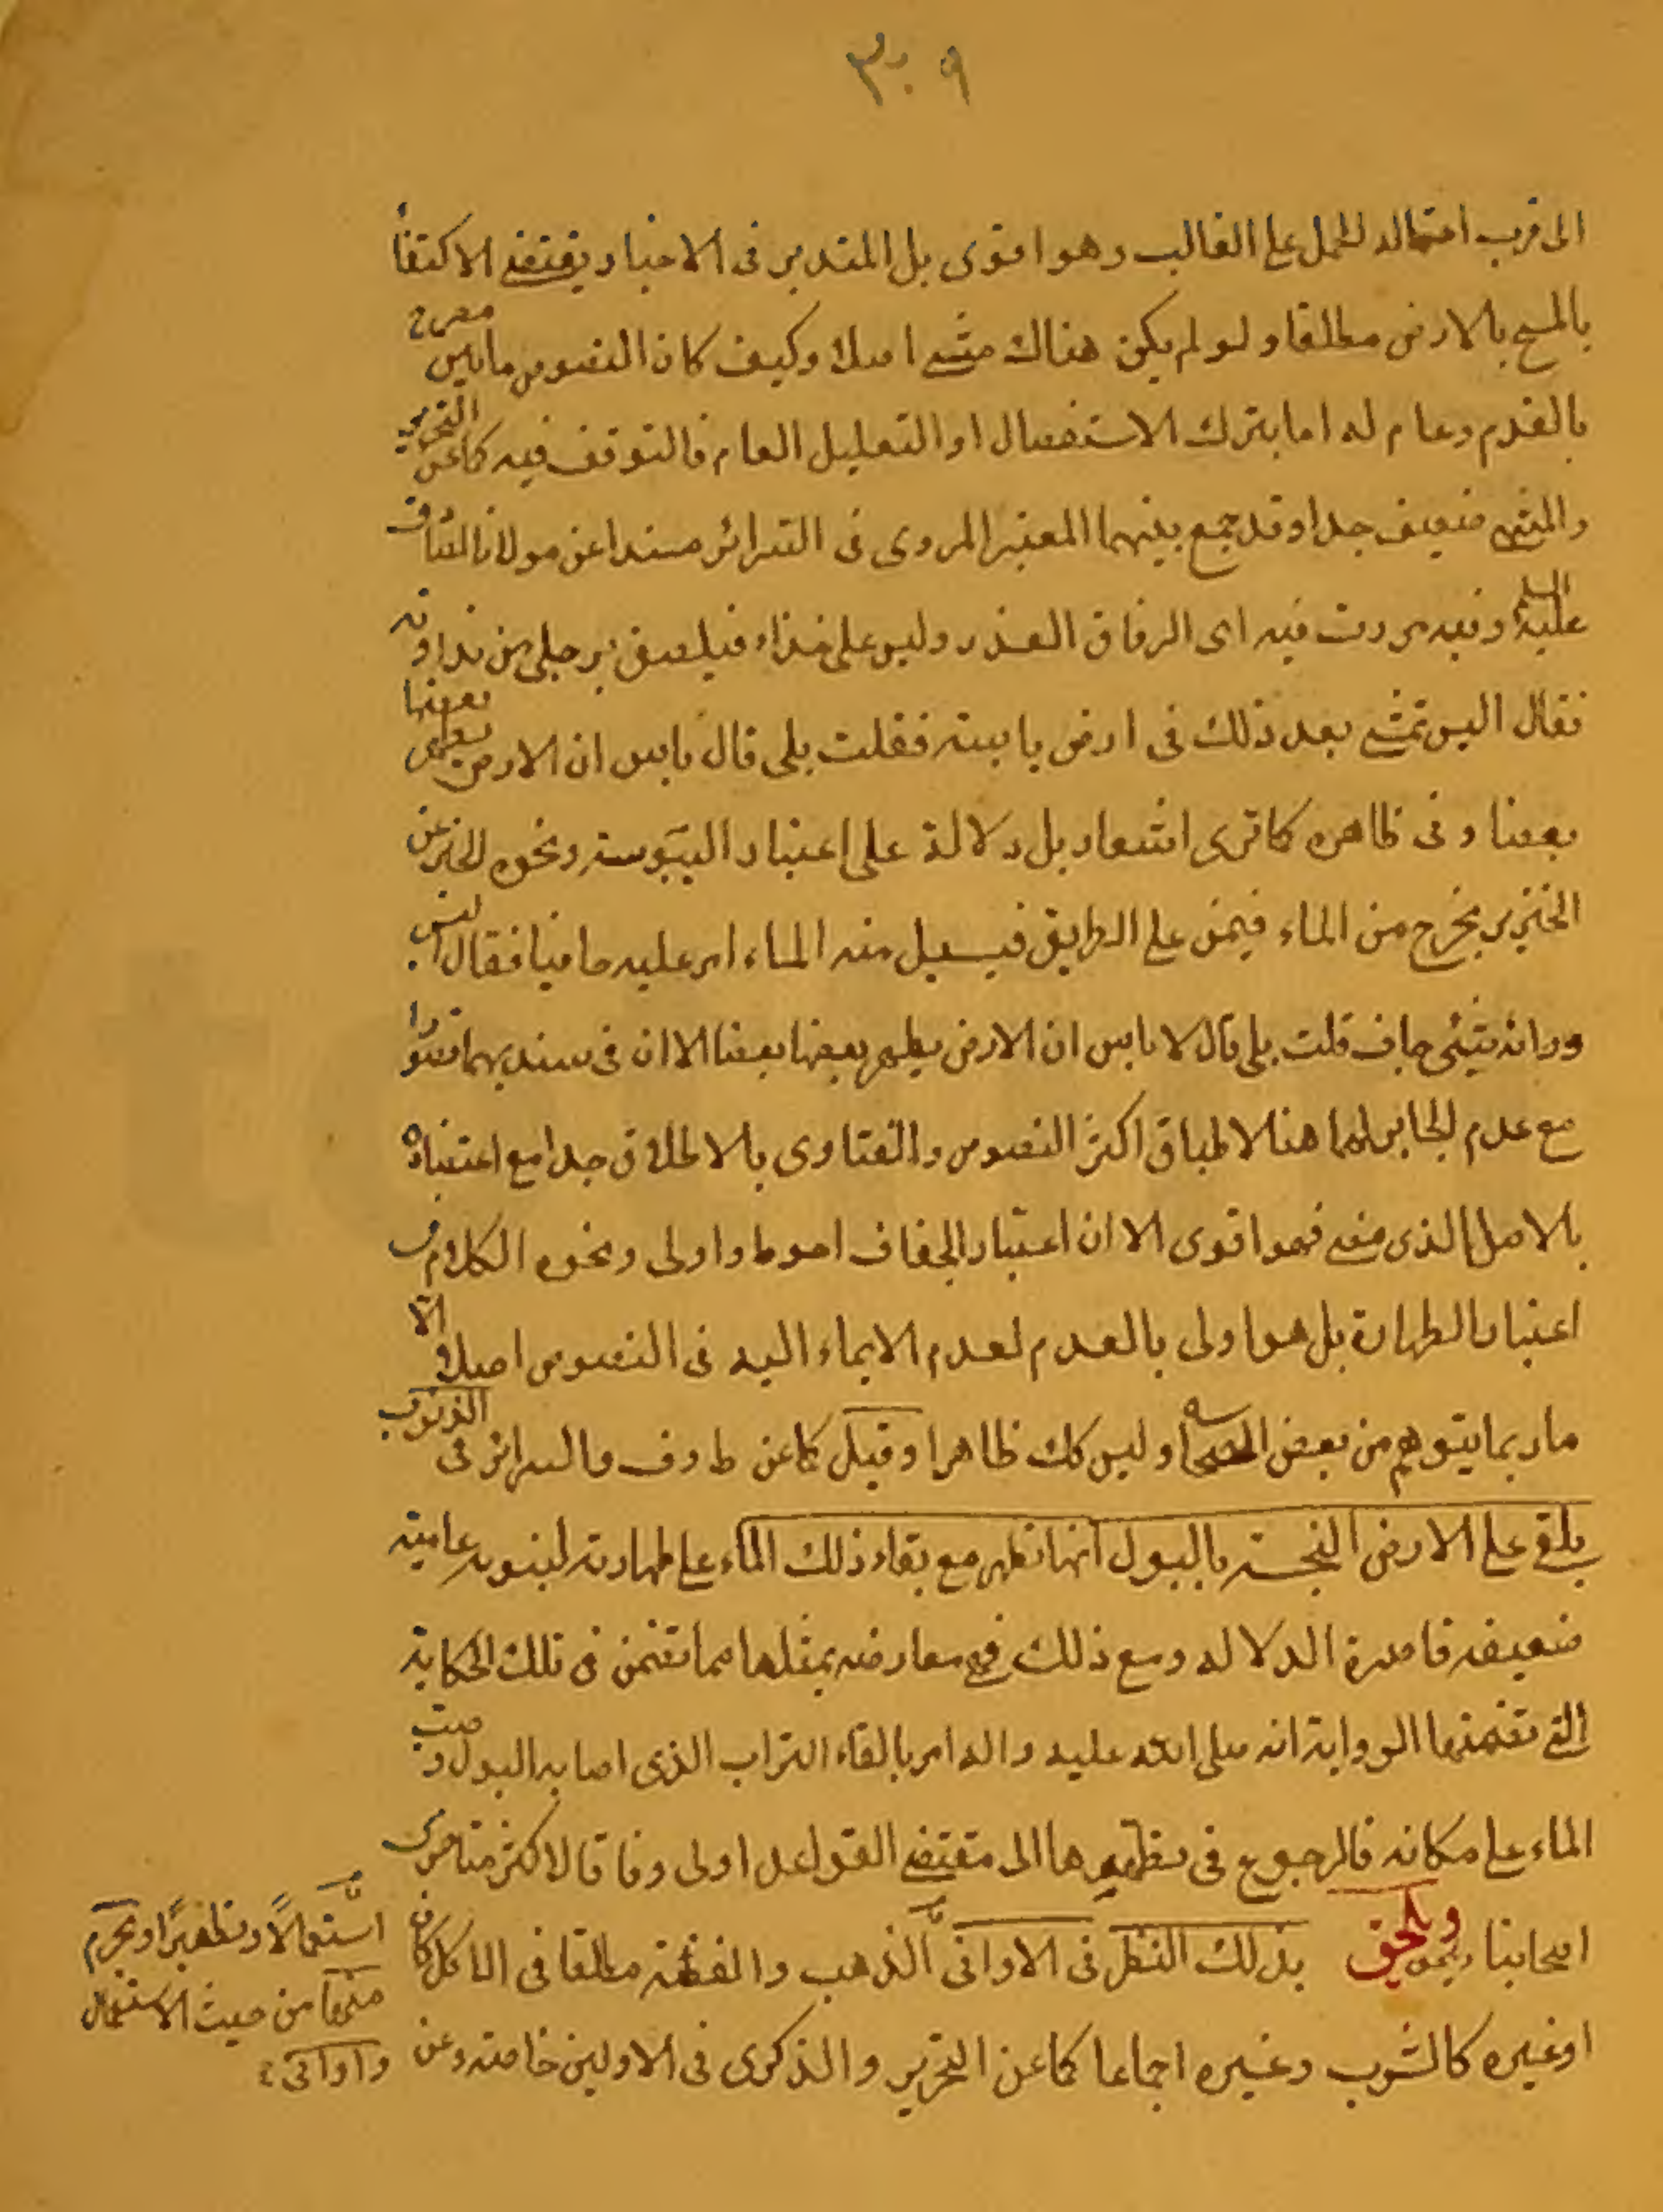 ٣٠٩
الى قرب احتماله للحمل على الغالب وهو اقوى بل المتدبر فى الاخبار يقتضى الاكتفاء
بالمسح بالارض مطلقا ولو لم يكن هناك مشى اصلا وكيف كان النصوص ما بين مصرح
بالقدم وعام له اما بترك الاستفصال او التعليل العام فالتوقف فيه كما عن التحرير
والمنتهى ضعيف جدا وقد جمع بينهما المعتبر المروى فى السرائر مسندا عن مولانا الصادق
عليه السلم وفيه مررت فيه اى الزقاق القذر وليس على حذاء فيلصق برجلى من نداوته
فقال اليس تمشى بعد ذلك فى ارض يابسة فقلت بلى قال لا باس ان الارض يطهر بعضها
بعضا وفى ظاهره كما ترى اشعار بل دلالة على اعتبار اليبوسة ونحوه الخبر عن
الخنزير يخرج من الماء فيمر على الطريق فيسيل منه الماء امر عليه حافيا فقال اليس
وراءه شىء جاف قلت بلى قال لا باس ان الارض يطهر بعضها بعضا الا ان فى سنديهما قصورا
مع عدم الجابر لهما هنا لاطباق اكثر النصوص والفتاوى بالاطلاق جدا مع اعتضاده
بالاصل الذى مضى فهو اقوى الا ان اعتبار الجفاف احوط واولى ونحوه الكلام فى
اعتبار الطهارة بل هو اولى بالعدم لعدم الايماء اليه فى النصوص اصلا الا
ما ربما يتوهم من بعض الصحاح وليس كك ظاهرا وقيل كما عن ط وف والسرائر فى الذنوب
يلقى على الارض النجسة بالبول انها تطهر مع بقاء ذلك الماء على طهارته لنبويه عامية
ضعيفة قاصرة الدلاله ومع ذلك فهى معارضه بمثلها مما تضمن فى تلك الحكاية
التى تضمنها الرواية انه صلى الله عليه واله امر بالقاء التراب الذى اصابه البول وصب
الماء على مكانه فالرجوع فى تطهيرها الى مقتضى القواعد اولى وفاقا لاكثر متاخرى
اصحابنا ويلحق بذلك النظر فى الاوانى الذهب والفضة مطلقا فى الاكل كان
او غيره كالشرب وغيره اجماعا كما عن التحرير والذكرى فى الاولين خاصة وعن
استعمالًا وتطهيرًا ويحرم
منها من حيث الاستعمال
واوانى